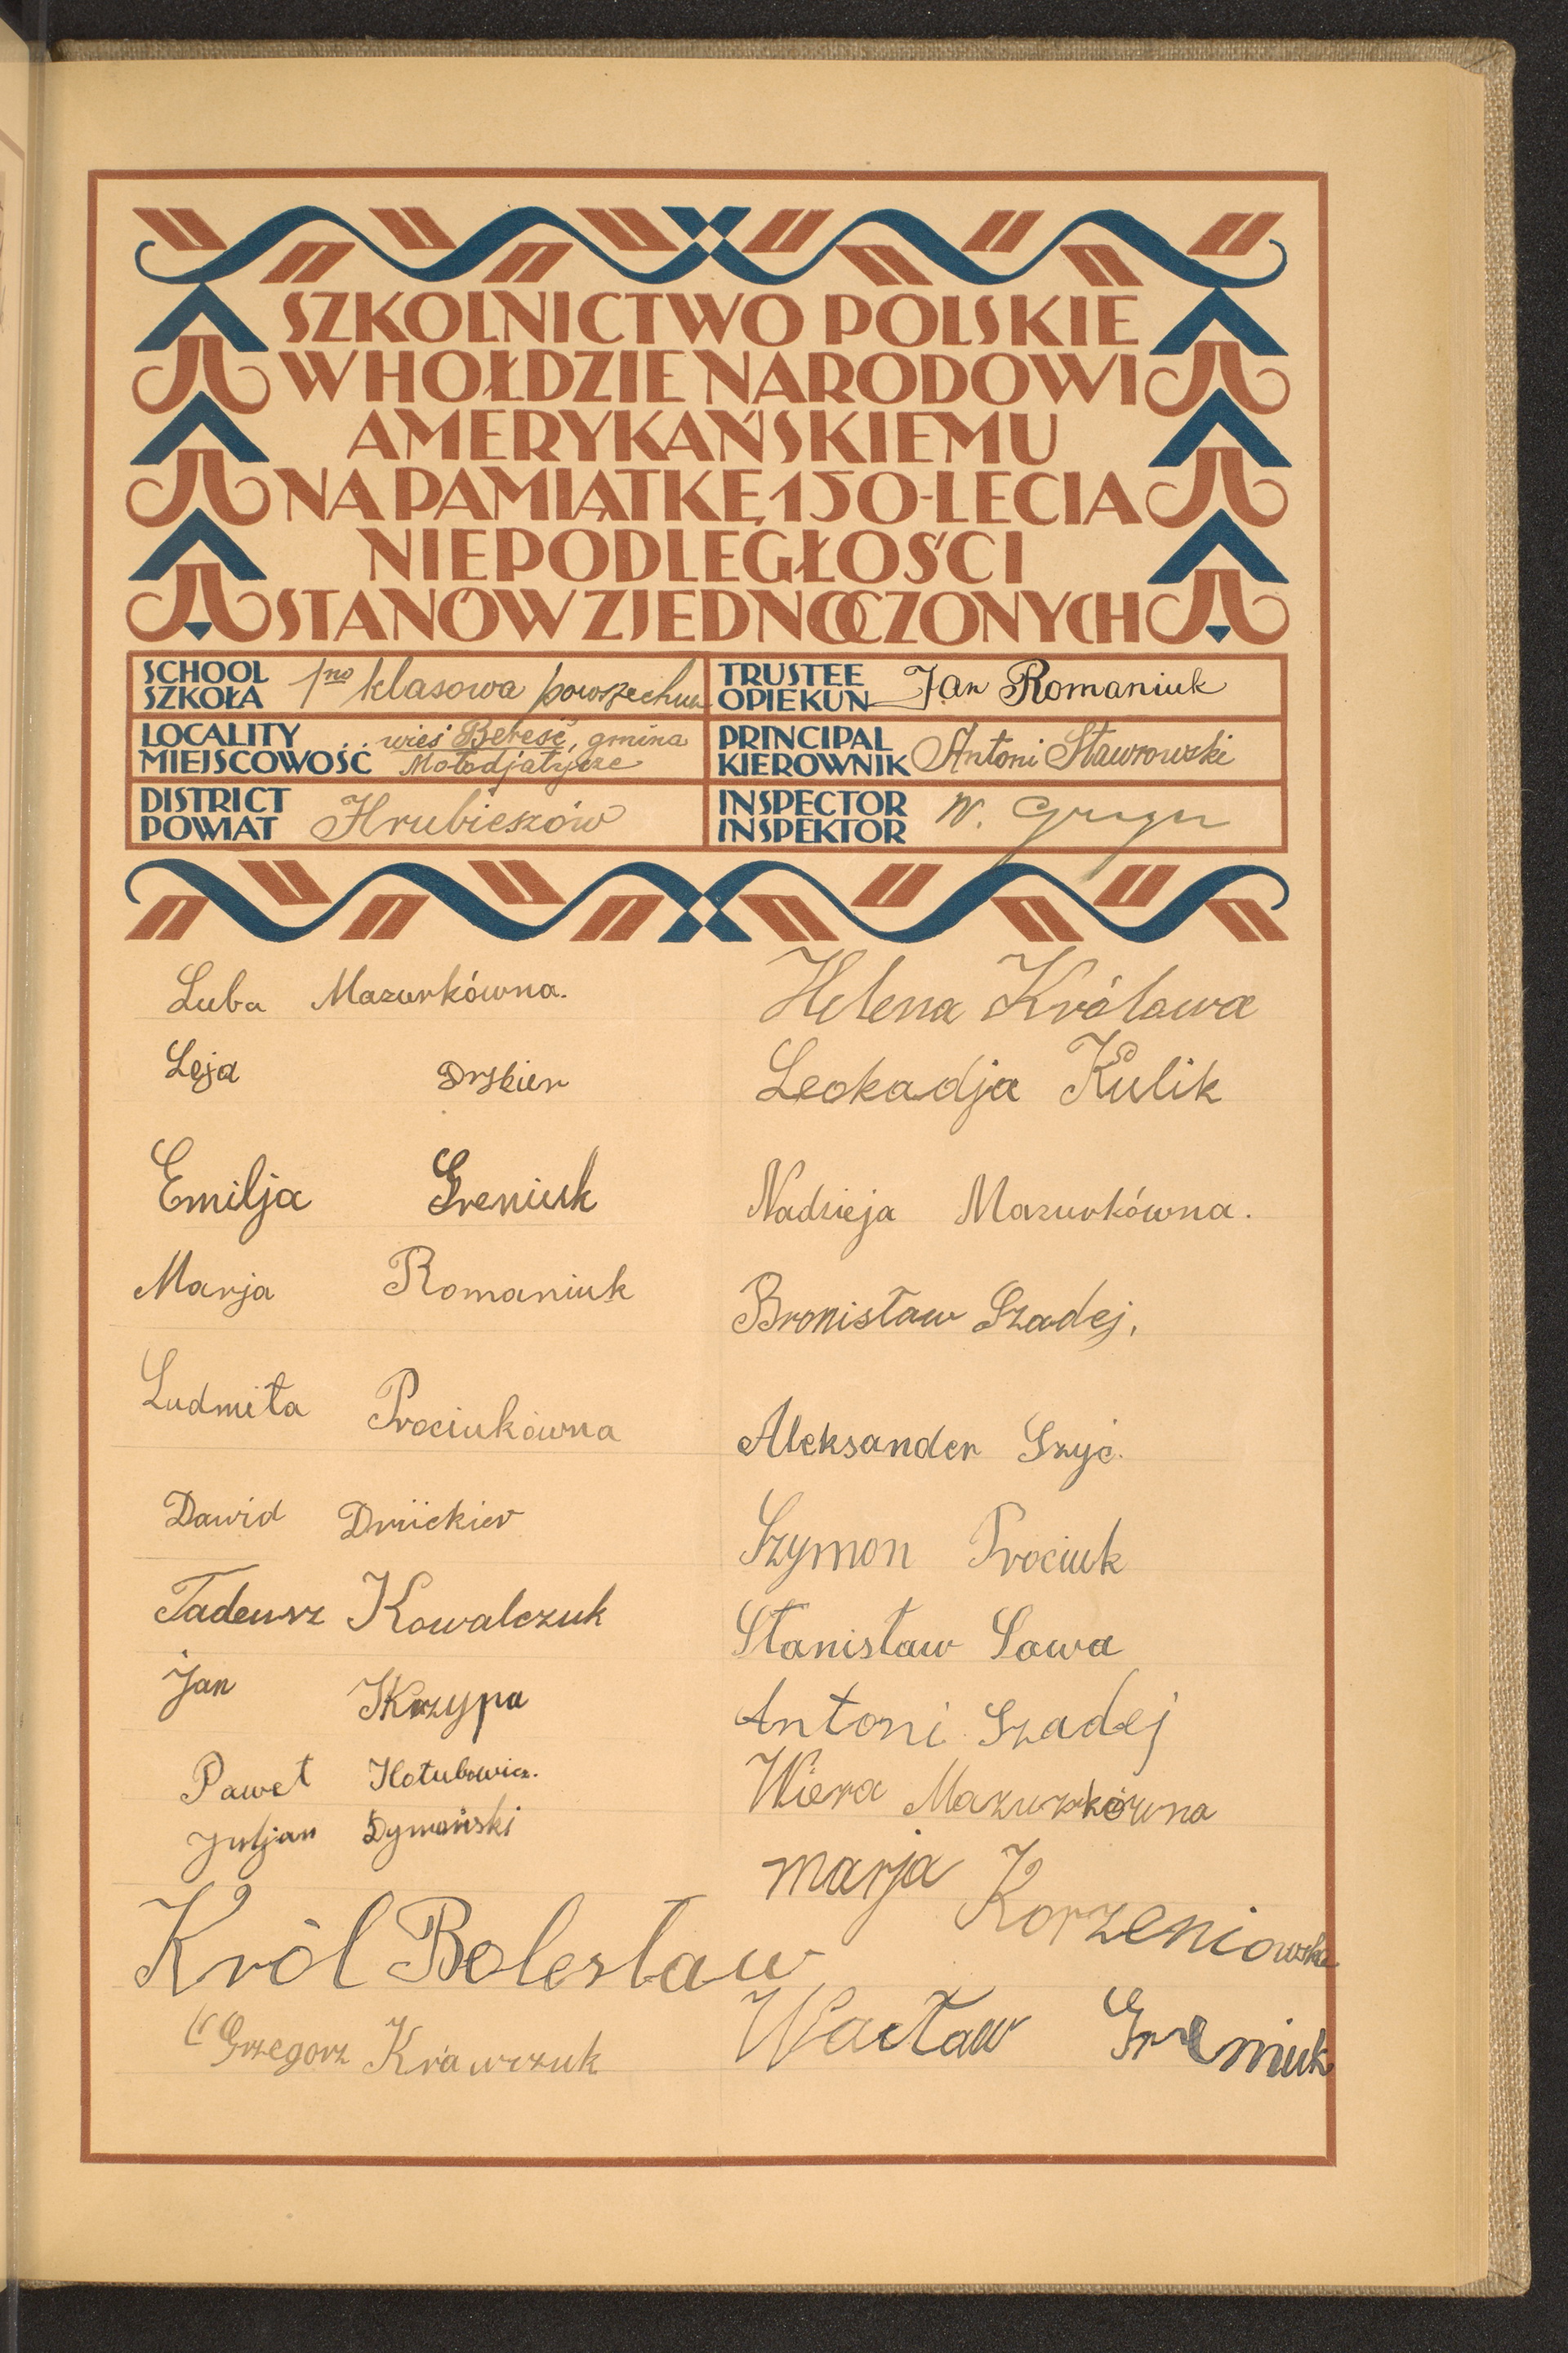 SZKOLNICTWO POLSKIE
W HOŁDZIE NARODOWI
AMERYKAŃSKIEMU
NA PAMIĄTKĘ 150-LECIA
NIEPODLEGŁOŚCI
STANÓW ZJEDNOCZONYCH
SCHOOL
SZKOŁA
1no klasowa powszechna
TRUSTEE
OPIEKUN
Jan Romaniuk
LOCALITY
MIEJSCOWOŚĆ
wieś Bereść, gmina
Mołodjatycze
PRINCIPAL
KIEROWNIK
Antoni Stawrowski
DISTRICT
POWIAT
Hrubieszów
INSPECTOR
INSPEKTOR
W.
Luba Mazurkówna.
Leja
Emilja Greniuk
Marja Romaniuk
Ludmiła Prociukówna
Dawid
Tadeusz Kowalczuk
Jan Skrzypa
Paweł Hołubowicz.
Juljan Dymański
Król Bolesław
Grzegorz Krawczuk
Helena Królowa
Leokadja Kulik
Nadzieja Mazurkówna.
Bronisław Szadej,
Aleksander Szyć.
Szymon Prociuk
Stanisław Sawa
Antoni Szadej
Wiera Mazurkówna
Marja Korzeniowska
Wacław Greniuk